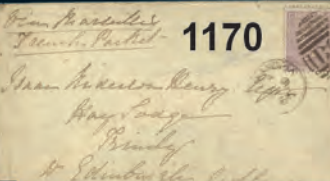 Via Marseilles
French Packet
1170
Isaac Anderson Henry Esqre
Hay Lodge
Trinity
Nr Edinburgh